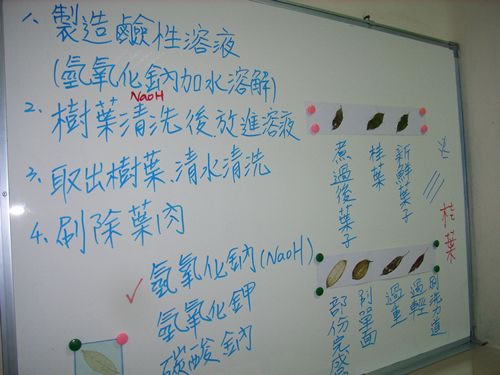 1. 製造鹼性溶液
(氫氧化鈉加水溶解)
NaOH
2. 樹葉清洗後放進溶液
3. 取出樹葉、清水清洗
4. 刷除葉肉
氫氧化鈉(NaOH)
氫氧化鉀
碳酸鈉
新鮮葉子
桂葉
煮過後葉子
桂葉
刷洗力道
過輕
過重
刮單面
部份完成